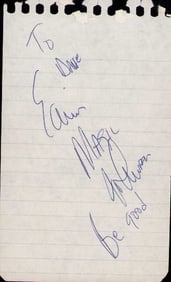 To
Dave
Earvin
Magic
Johnson
Be Good